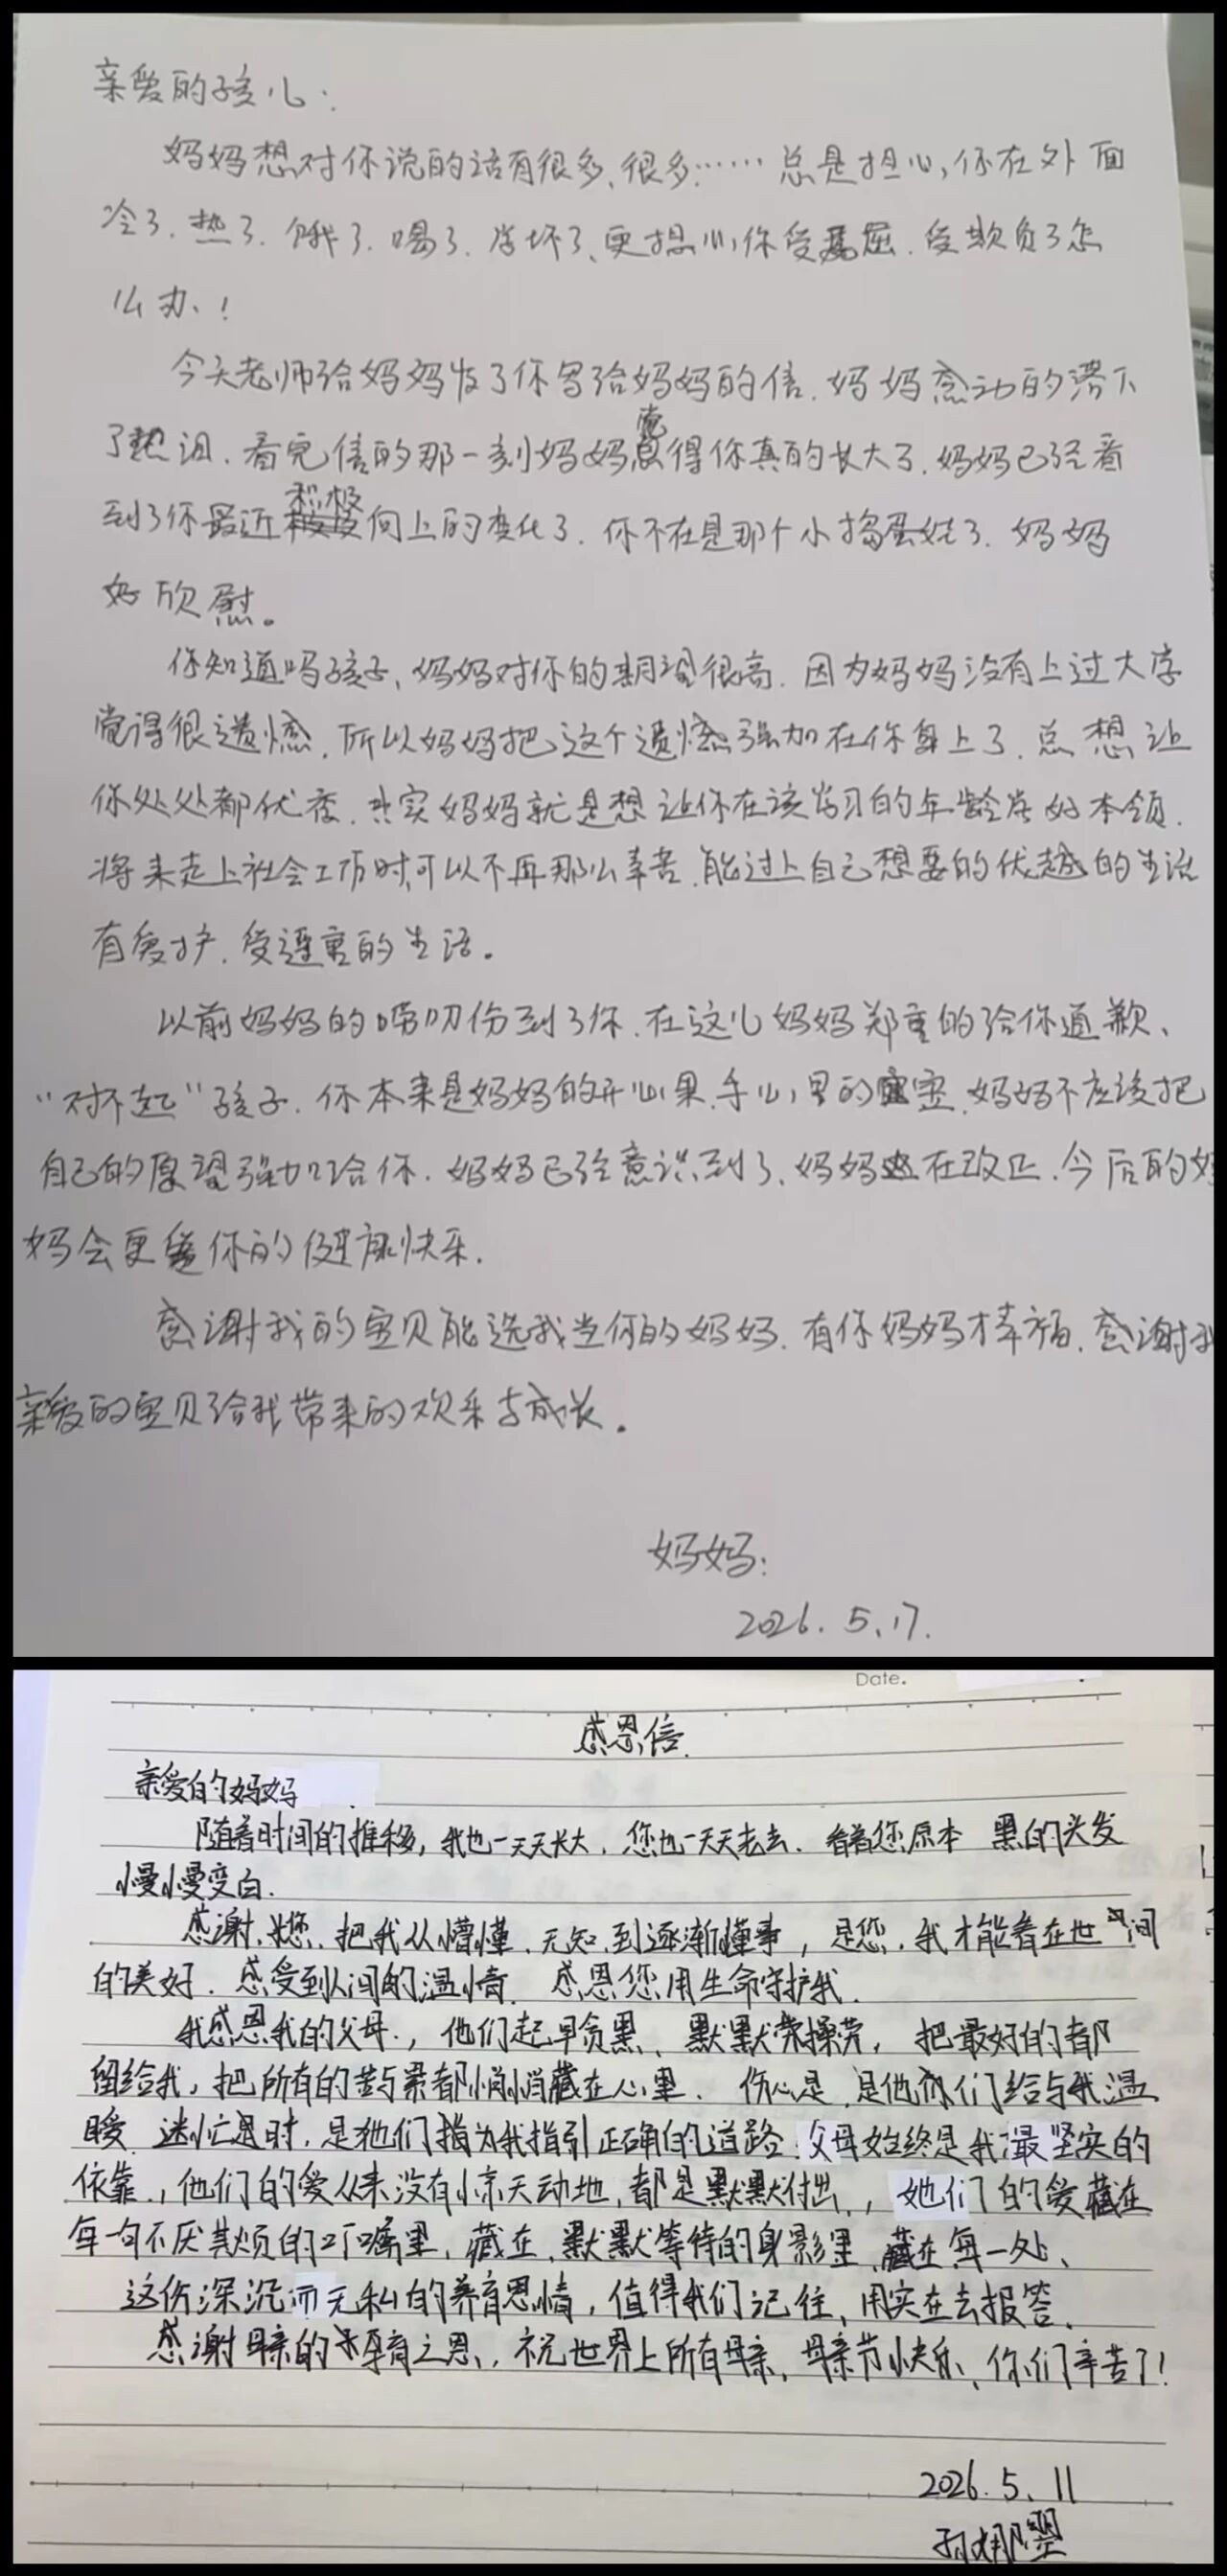 亲爱的孩儿：
妈妈想对你说的话有很多、很多…… 总是担心，你在外面
冷了．热了．饿了．喝了．学坏了、更担心你受委屈．受欺负了怎
么办、！
今天老师给妈妈发了你写给妈妈的信．妈妈感动的落下
了热泪．看完信的那一刻妈妈觉得你真的长大了．妈妈已经看
到了你最近积极向上的变化了．你不在是那个小捣蛋娃了．妈妈
好欣慰。
你知道吗孩子、妈妈对你的期望很高．因为妈妈没有上过大学
觉得很遗憾．所以妈妈把这个遗憾强加在你身上了．总想让
你处处都优秀．其实妈妈就是想让你在该学习的年龄学好本领．
将来走上社会工作时可以不再那么辛苦．能过上自己想要的优越的生活
有爱护．受遵重的生活。
以前妈妈的唠叨伤到了你．在这儿妈妈郑重的给你道歉、
“对不起”孩子．你本来是妈妈的开心果．手心里的宝．妈妈不应该把
自己的原望强加给你．妈妈已经意识到了、妈妈也在改正．今后的妈
妈会更爱你的健康快乐．
感谢我的宝贝能选我当你的妈妈．有你妈妈才幸福．感谢我
亲爱的宝贝给我带来的欢乐与成长。
妈妈：
2026．5．17．
Date.
感恩信．
亲爱的妈妈
随着时间的推移，我也一天天长大，您也一天天老去．看着您原本 黑的头发
慢慢变白．
感谢 您．把我从懵懂．无知．到逐渐懂事，是您．我才能看在世间
的美好．感受到人间的温情．感恩您用生命守护我．
我感恩我的父母．，他们起早贪黑、默默操劳，把最好的都
留给我，把所有的苦与累都悄悄藏在心里． 伤心是．是他们给与我温
暖．迷忙是时．是他们为我指引正确的道路．父母始终是我最坚实的
依靠．，他们的爱从来没有惊天动地，都是默默付出，，她们的爱藏在
每一句不厌其烦的叮嘱里，藏在．默默等待的身影里．藏在每一处、
这份深沉而无私的养育恩情，值得我们记住，用实在去报答．
感谢母亲的孕育之恩，祝世界上所有母亲，母亲节快乐、你们辛苦了！
2026．5．11